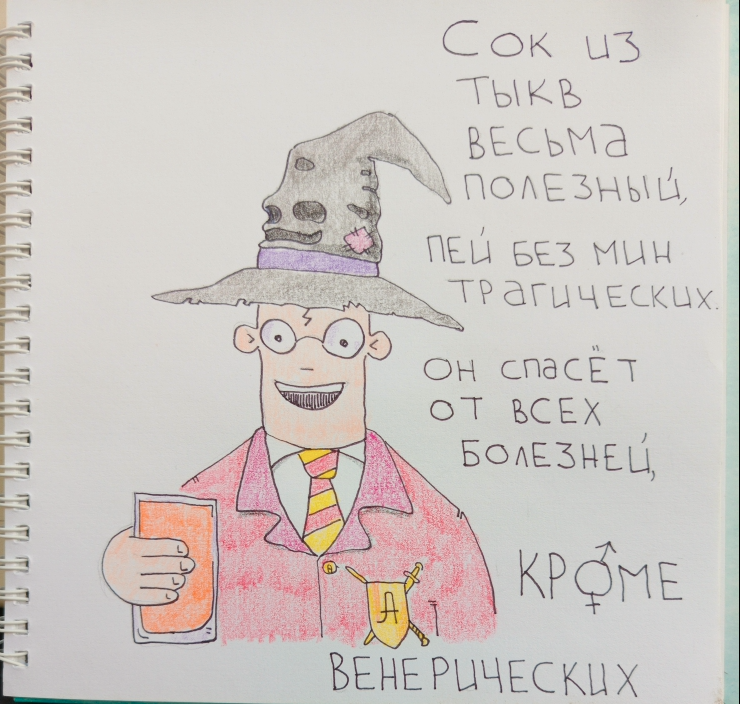 Сок из
тыкв
весьма
полезный,
пей без мин
трагических.
Он спасёт
от всех
болезней,
кроме
венерических
А